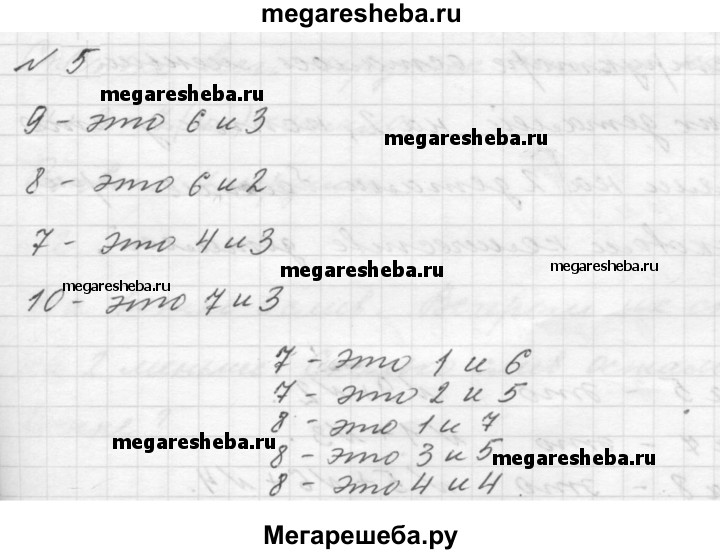 megaresheba.ru
№ 5
megaresheba.ru
9 - это 6 и 3
megaresheba.ru
8 - это 6 и 2
7 - это 4 и 3
megaresheba.ru
megaresheba.ru
megaresheba.ru
10 - это 7 и 3
7 - это 1 и 6
7 - это 2 и 5
8 - это 1 и 7
megaresheba.ru
8 - это 3 и 5
megaresheba.ru
8 - это 4 и 4
Мегарешеба.ру